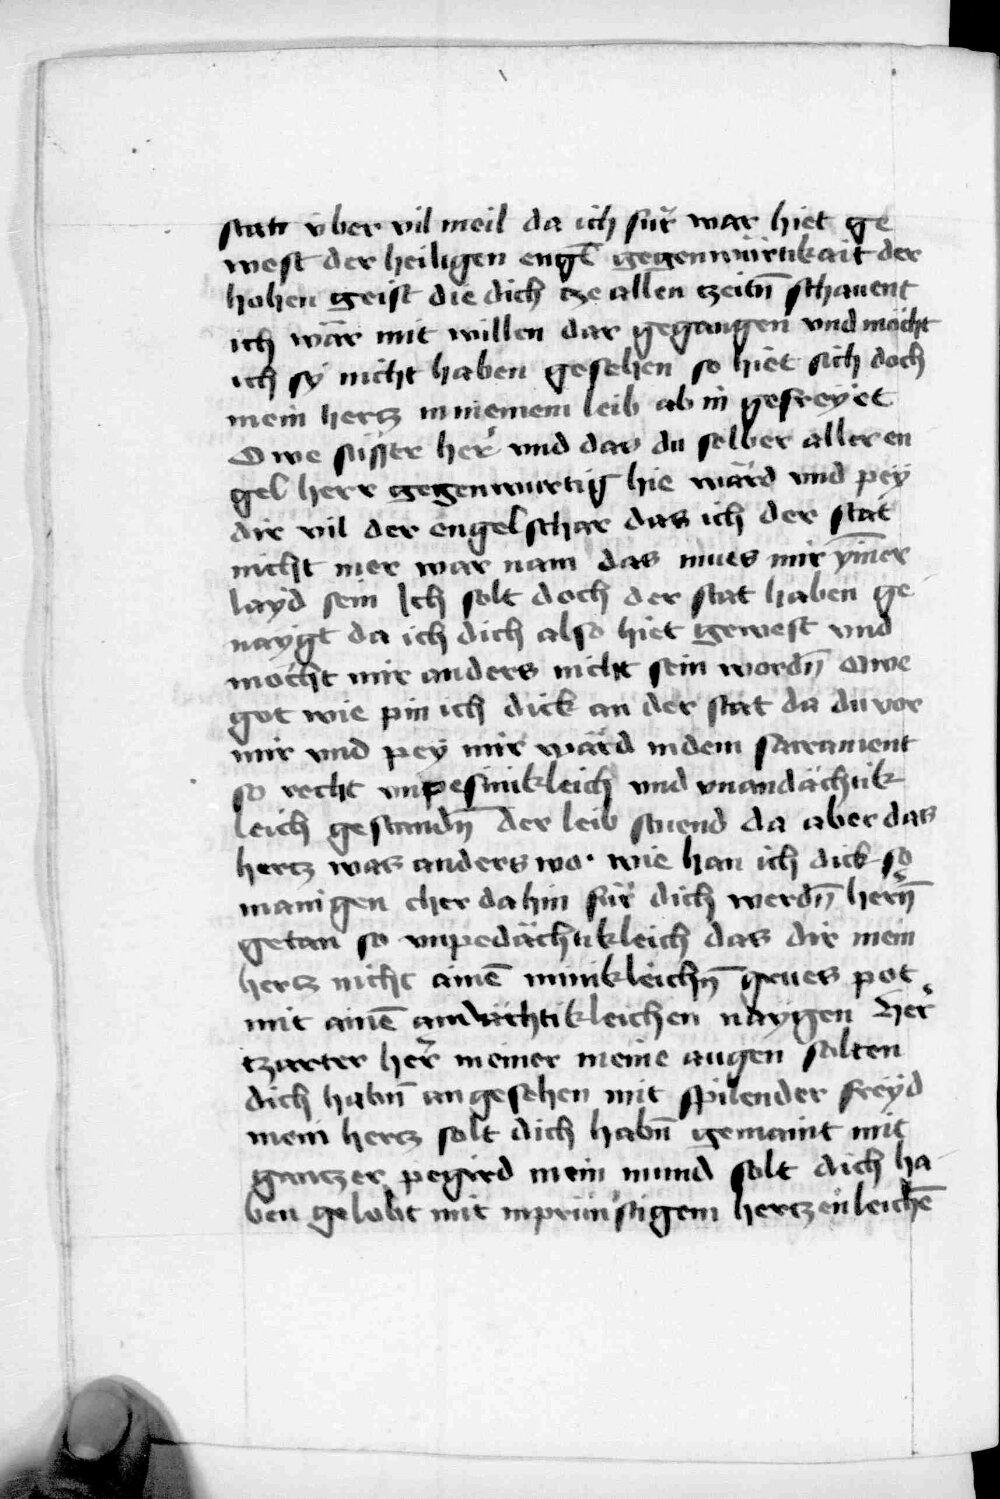 stat v̈ber vil meil da ich für war hiet ge
west der heiligen engl̄ gegenwürtikait der
hohen geist die dich tze allen tzeitn̄ schauent
ich wär mit willen dar gegangen vnd möcht
ich sÿ nicht haben gesehen so hiet sich doch
mein hertz in meinem leib ab in gefreÿet
O we süsser her vnd das du selber aller en
gel herr gegenwurtig hie wärd vnd peÿ
dir vil der engel schar das ich der stat
nicht mer war nam das mues mir ÿm̄er
laÿd sein Ich solt doch der stat haben ge
naÿgt da ich dich also hiet gewest vnd
möcht mir anders nicht sein wordn̄ Owe
got wie pin ich dick an der stat da du vor
mir vnd peÿ mir wärd in dem sacrament
so recht vnpesinikleich vnd vnandächtik
leich gestandn̄ der leib stuend da aber das
hertz was anders wo · wie han ich dick so
manigen cher dahin für dich werdn̄ hern̄
getan so vnpedächtikleich das dir mein
hertz nicht ainē minikleichn̄ grues pot
mit ainē andächtikleichen naÿgen Her
tzarter her meiner meine augen solten
dich habn̄ angesehen mit spilender freÿd
mein hertz solt dich habn̄ gemaint mit
gantzer pegird mein mund solt dich ha
ben gelobt mit inprünstigem hertzenleichē